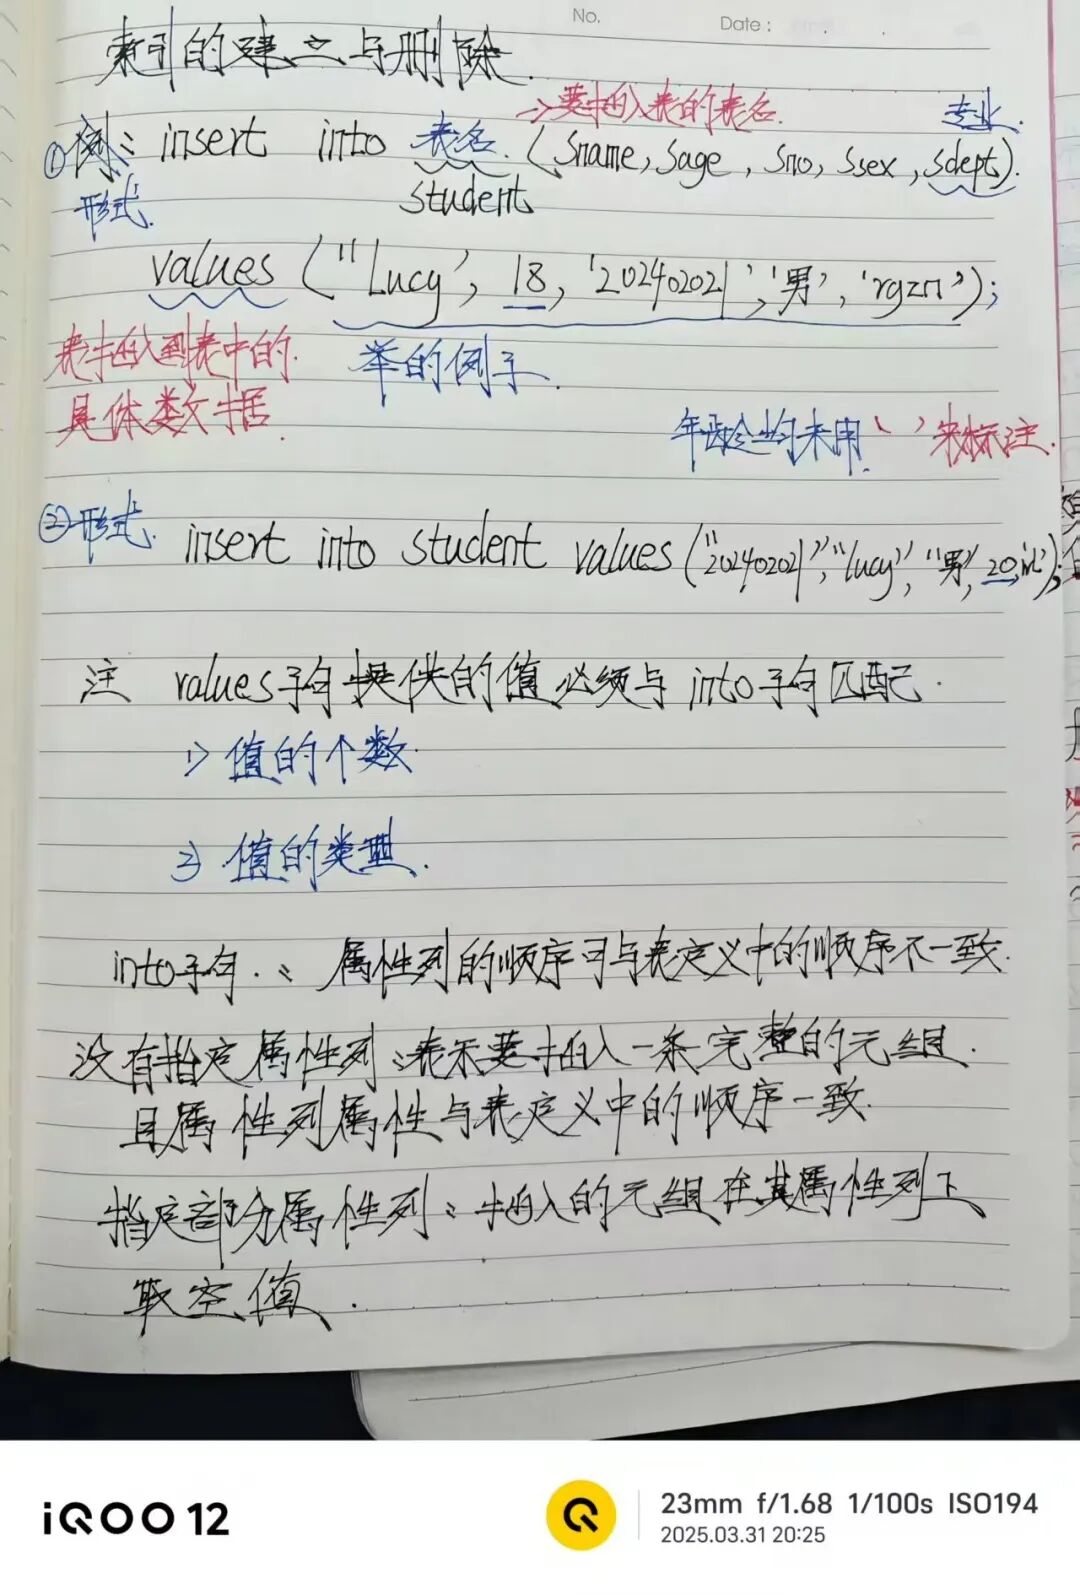 No.
Date:
索引的建立与删除.
→要插入表的表名.
专业.
①例: insert into 表名. (Sname, Sage, Sno, Ssex, Sdept).
形式.
student
values ("Lucy', 18, '20240202', '男', 'rgzn');
表插入到表中的.
具体数据.
举的例子.
年龄均未用 ' ' 来标注.
②形式. insert into student values ("20240202", "lucy", "男", 20,
注 values子句提供的值必须与 into子句匹配.
1> 值的个数.
2) 值的类型.
into子句.: 属性列的顺序可与表定义中的顺序不一致.
没有指定属性列:表示要插入一条完整的元组.
且属性列属性与表定义中的顺序一致.
指定部分属性列:插入的元组在其属性列下
取空值.
iQOO 12
23mm f/1.68 1/100s ISO194
2025.03.31 20:25